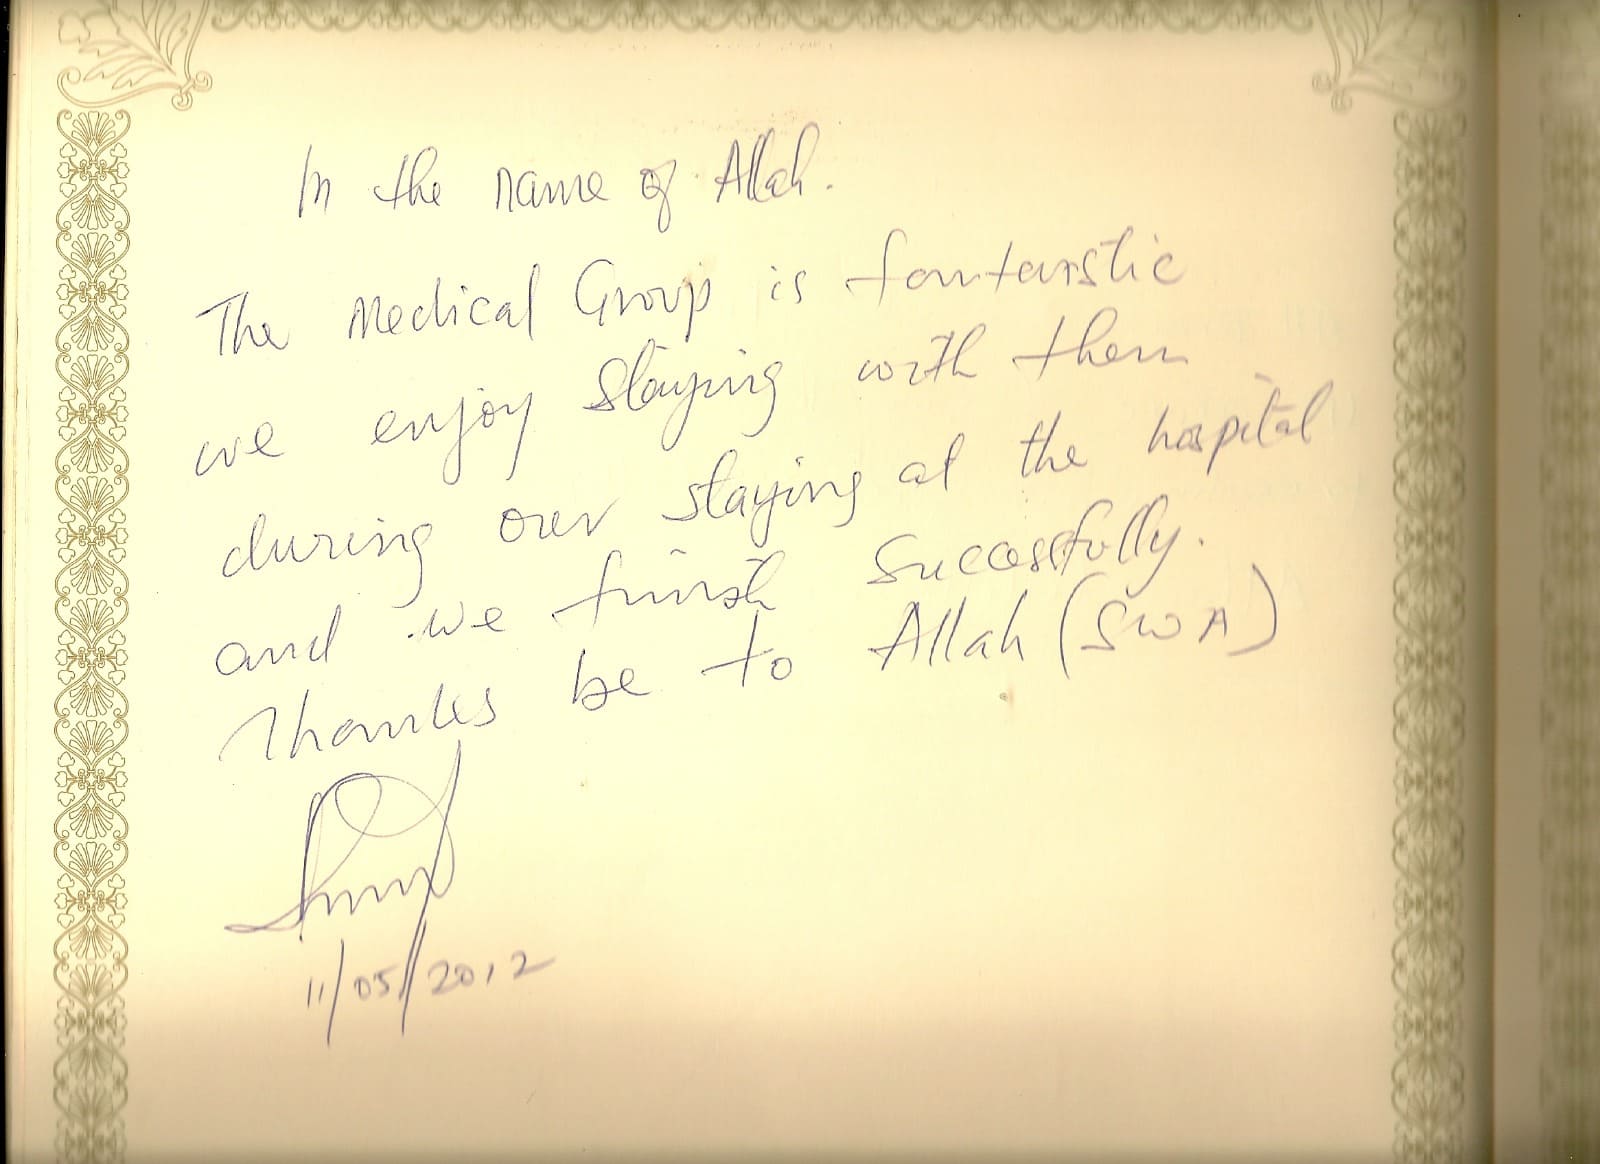 In the name of Allah.
The Medical Group is fantastic
we enjoy staying with them
during our staying at the hospital
and we finish successfully.
Thanks be to Allah (SWA)
11/05/2012